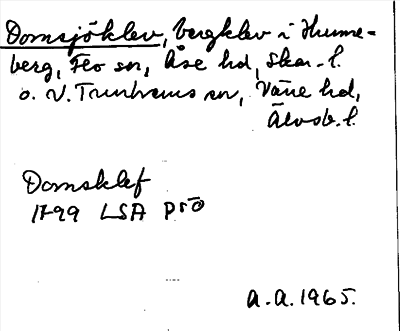 Domsjöklev, bergklev i Hunne-
berg, Flo sn, Åse hd, Skar. l.
o. V. Tunhems sn, Väne hd,
Älvsb. l.
Domsklef
1799 LSA prö
A.A. 1965.